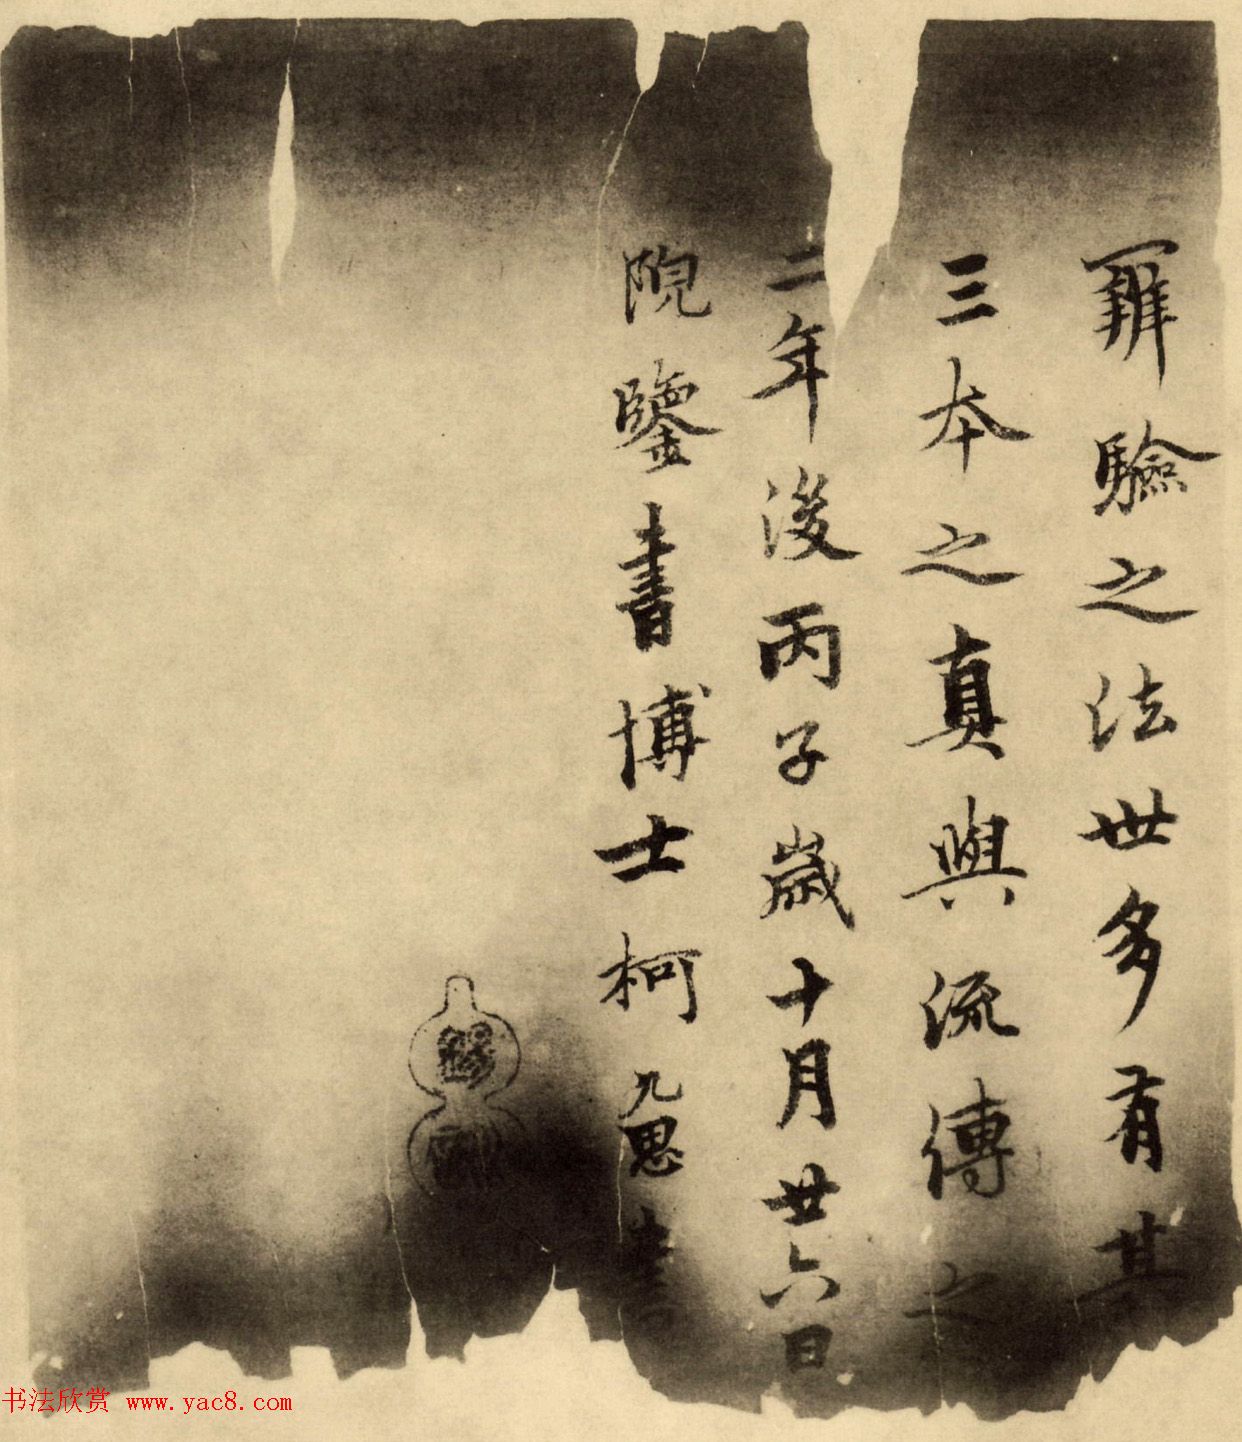 驗之法世多有其
三本之真與流傳之
二年後丙子歲十月廿六日
鑒書博士柯九思書
书法欣赏 www.yac8.com